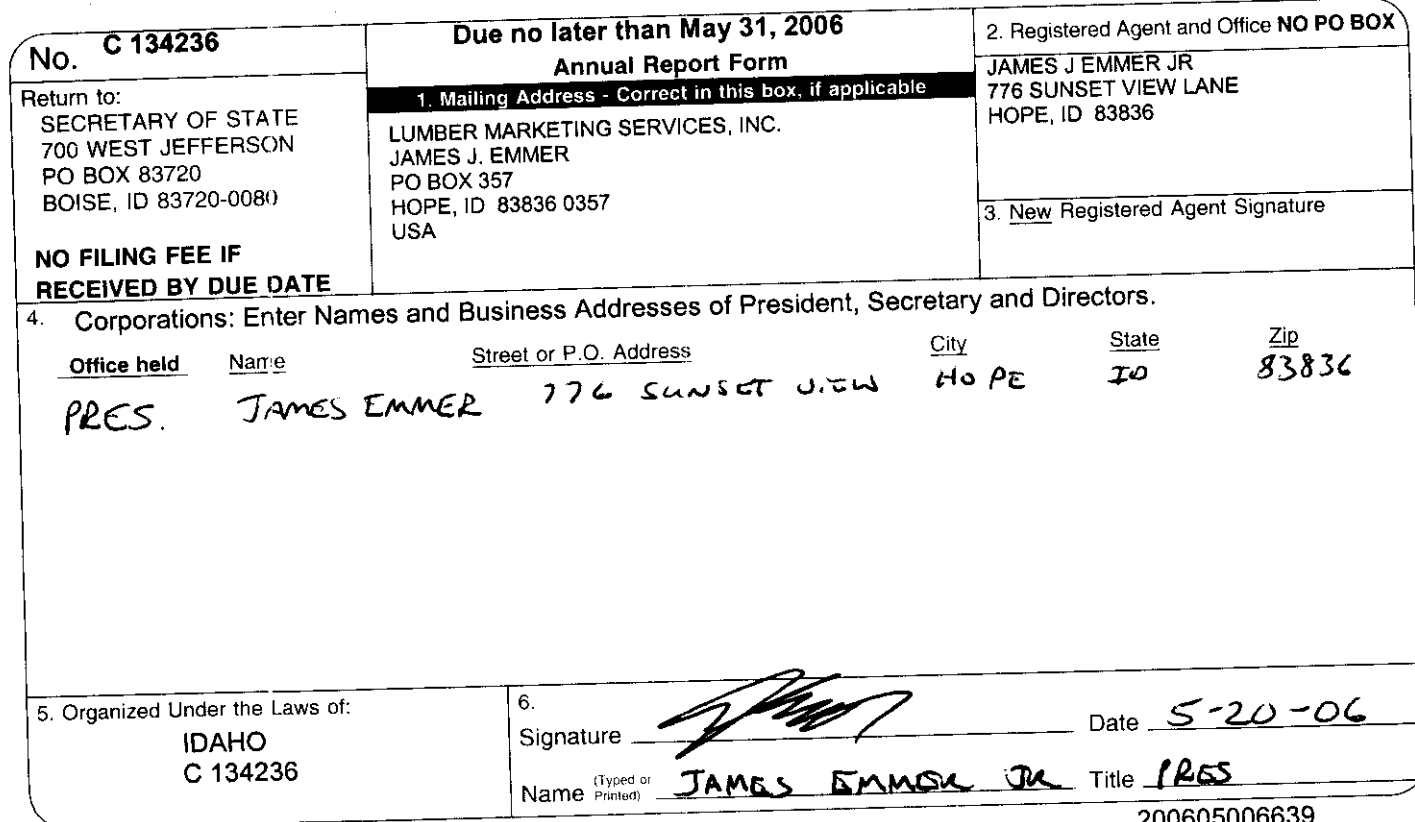 No. C 134236
Return to:
SECRETARY OF STATE
700 WEST JEFFERSON
PO BOX 83720
BOISE, ID 83720-0080
NO FILING FEE IF
RECEIVED BY DUE DATE
Due no later than May 31, 2006
Annual Report Form
1. Mailing Address - Correct in this box, if applicable
LUMBER MARKETING SERVICES, INC.
JAMES J. EMMER
PO BOX 357
HOPE, ID 83836 0357
USA
2. Registered Agent and Office NO PO BOX
JAMES J EMMER JR
776 SUNSET VIEW LANE
HOPE, ID 83836
3. New Registered Agent Signature
4. Corporations: Enter Names and Business Addresses of President, Secretary and Directors.
Office held Name Street or P.O. Address City State Zip
PRES. JAMES EMMER 776 SUNSET VIEW HOPE ID 83836
5. Organized Under the Laws of:
IDAHO
C 134236
6.
Signature Date 5-20-06
Name (Typed or Printed) JAMES EMMER JR Title PRES
200605006639